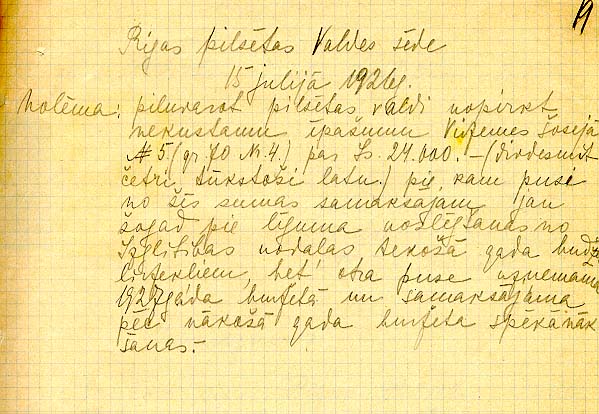 19
Rīgas pilsētas Valdes sēde
15 julijā 1926g.
nolēma: pilnvarot pilsētas valdi nopirkt
nekustamu īpašumu Vidzemes šosejā
№ 5 (gr. 70 N. 4.) par Ls. 24.000.- (divdesmit
četri tūkstoši latu.) pie kam puse
no šīs sumas samaksājam jau
šogad pie līguma noslēgšanas no
Izglītības nodaļas tekošā gada budž.
līdzekļiem, bet otra puse uzņemama
1927 gada budžetā un samaksājama
pēc nākošā gada budžeta spēkā nāk
šanas.-